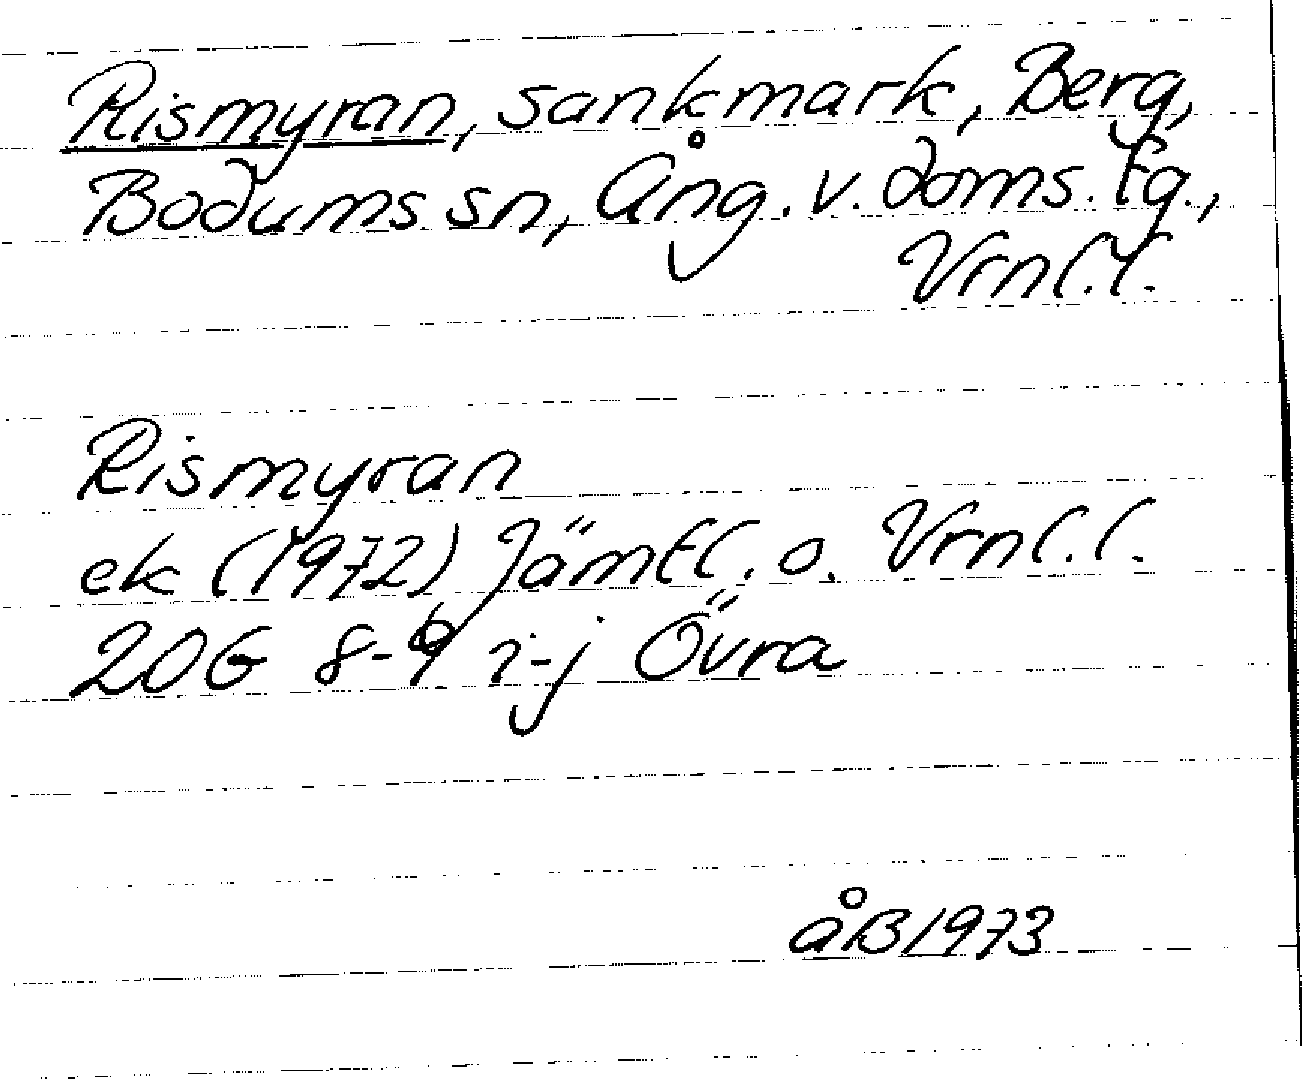 Rismyran, sankmark, Berg,
Bodums sn, Ång. v. doms. tg.,
Vrnl.l.
Rismyran
ek (1972) Jämtl. o. Vrnl.l.
20G 8-9 i-j Övra
åB 1973